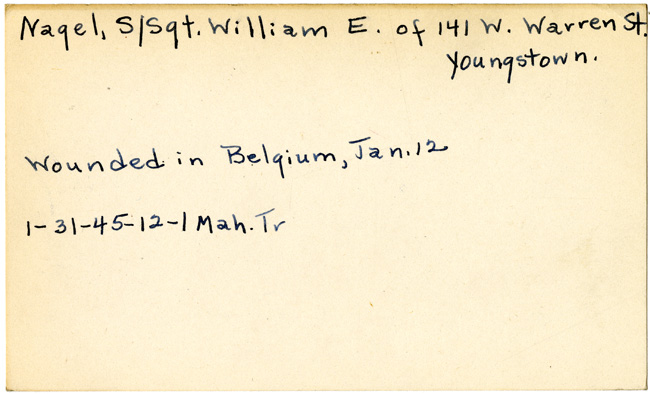 Nagel, S/Sgt. William E. of 141 W. Warren St.
Youngstown.
Wounded in Belgium, Jan. 12
1-31-45-12-1 Mah. Tr